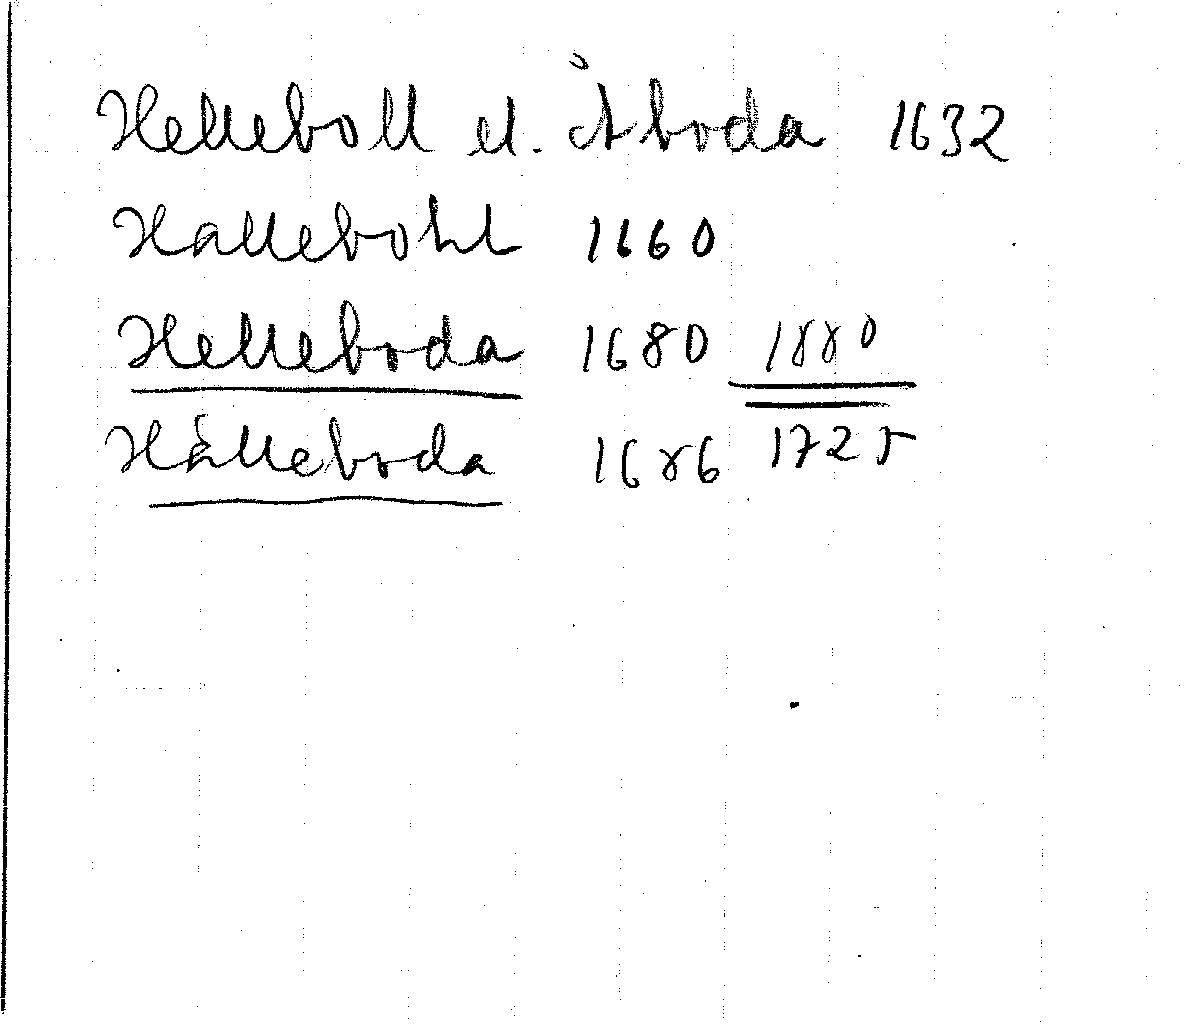 Helleboll el. Åboda 1632
Hallebohl 1660
Helleboda 1680 1880
Hålleboda 1686 1725